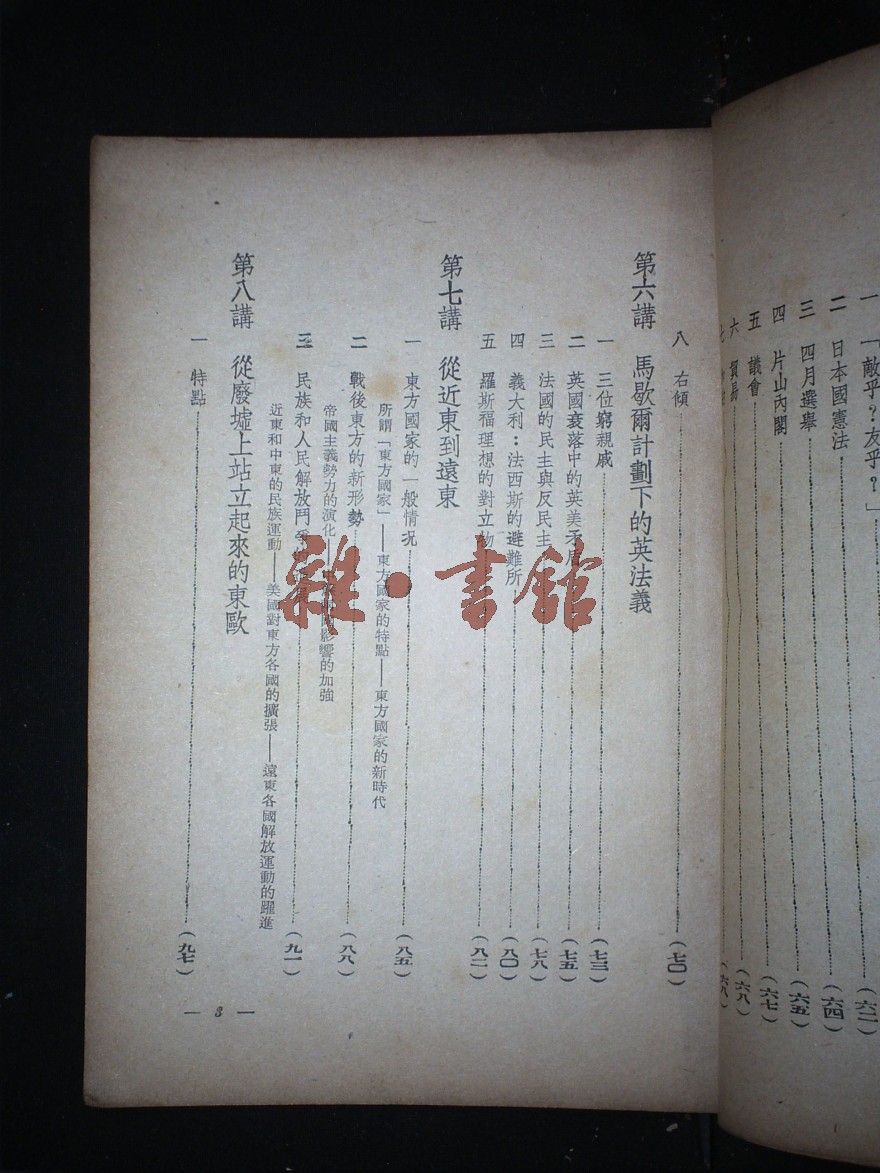 一 「敵乎？友乎？」 (六二)
二 日本國憲法 (六四)
三 四月選舉 (六五)
四 片山內閣 (六七)
五 議會
六 貿易 (六八)
八 右傾 (七〇)
第六講 馬歇爾計劃下的英法義
一 三位窮親戚 (七三)
二 英國衰落中的英美矛盾 (七五)
三 法國的民主與反民主 (七八)
四 義大利：法西斯的避難所 (八〇)
五 羅斯福理想的對立物 (八二)
第七講 從近東到遠東
一 東方國家的一般情況 (八五)
所謂「東方國家」——東方國家的特點——東方國家的新時代
二 戰後東方的新形勢 (八八)
帝國主義勢力的演化——影響的加強
三 民族和人民解放鬥爭 (九一)
近東和中東的民族運動——美國對東方各國的擴張——遠東各國解放運動的躍進
第八講 從廢墟上站立起來的東歐
一 特點 (九七)
— 3 —
雜·書館